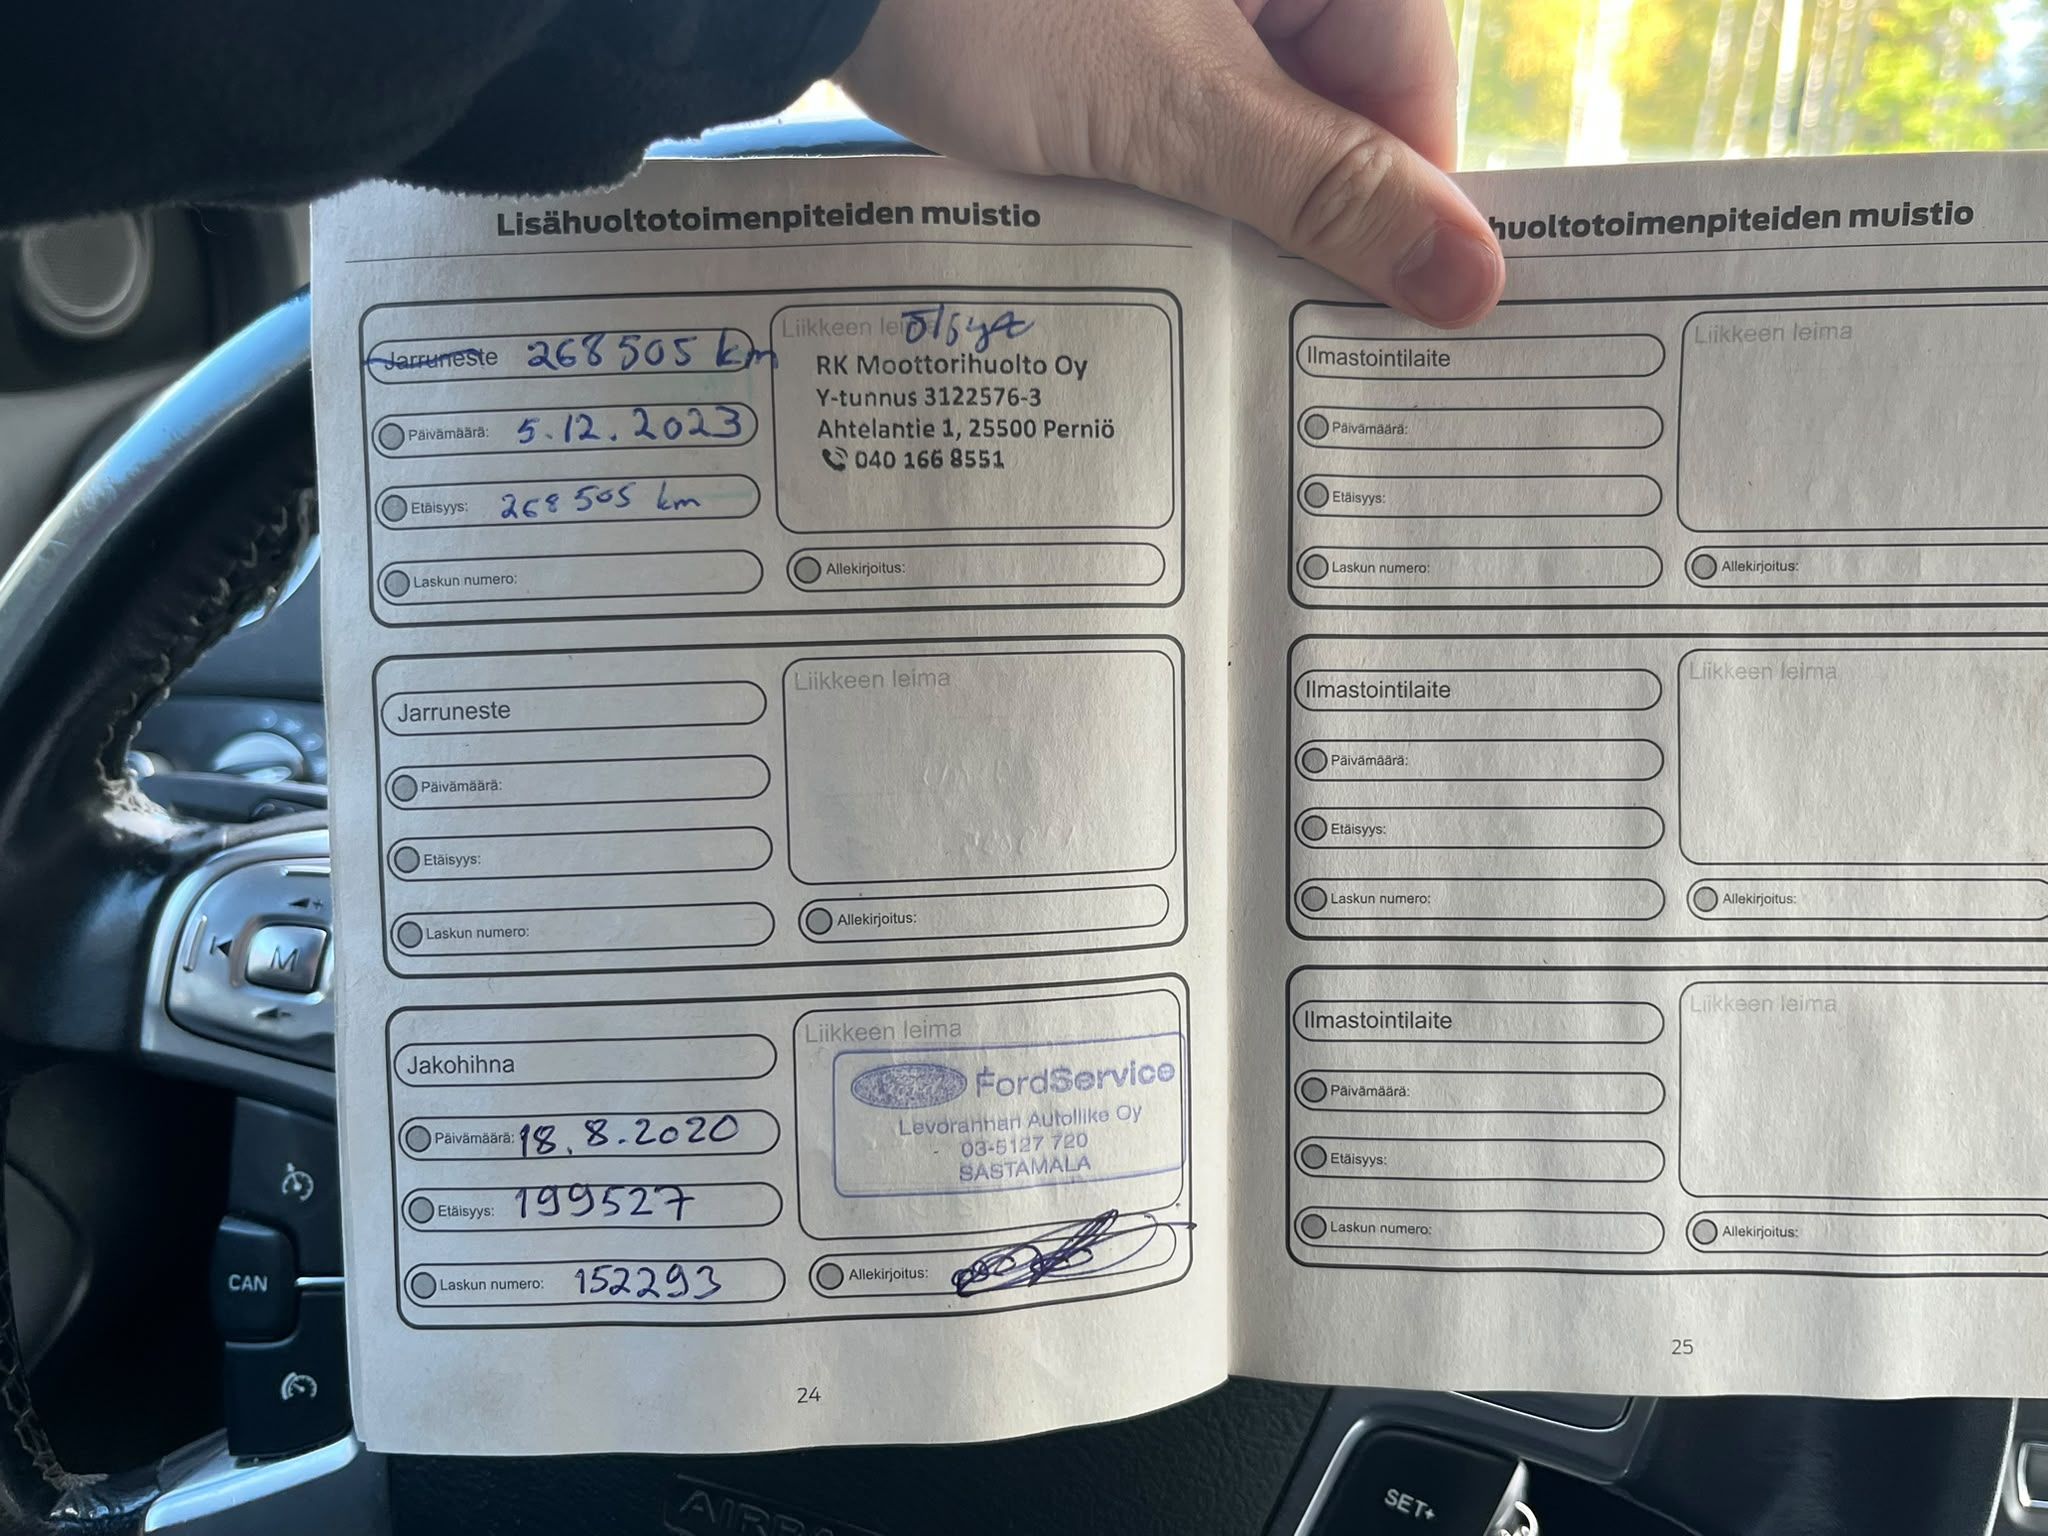 Lisähuoltotoimenpiteiden muistio
Jarruneste 268 505 km
Päivämäärä: 5.12.2023
Etäisyys: 268 505 km
Laskun numero:
Liikkeen leima
RK Moottorihuolto Oy
Y-tunnus 3122576-3
Ahtelantie 1, 25500 Perniö
040 166 8551
Allekirjoitus:
Jarruneste
Päivämäärä:
Etäisyys:
Laskun numero:
Liikkeen leima
Allekirjoitus:
Jakohihna
Päivämäärä: 18.8.2020
Etäisyys: 199527
Laskun numero: 152293
Liikkeen leima
FordService
Levorannan Autoliike Oy
03-5127 720
SASTAMALA
Allekirjoitus:
24
huoltotoimenpiteiden muistio
Ilmastointilaite
Päivämäärä:
Etäisyys:
Laskun numero:
Liikkeen leima
Allekirjoitus:
Ilmastointilaite
Päivämäärä:
Etäisyys:
Laskun numero:
Liikkeen leima
Allekirjoitus:
Ilmastointilaite
Päivämäärä:
Etäisyys:
Laskun numero:
Liikkeen leima
Allekirjoitus:
25
M
CAN
SET+